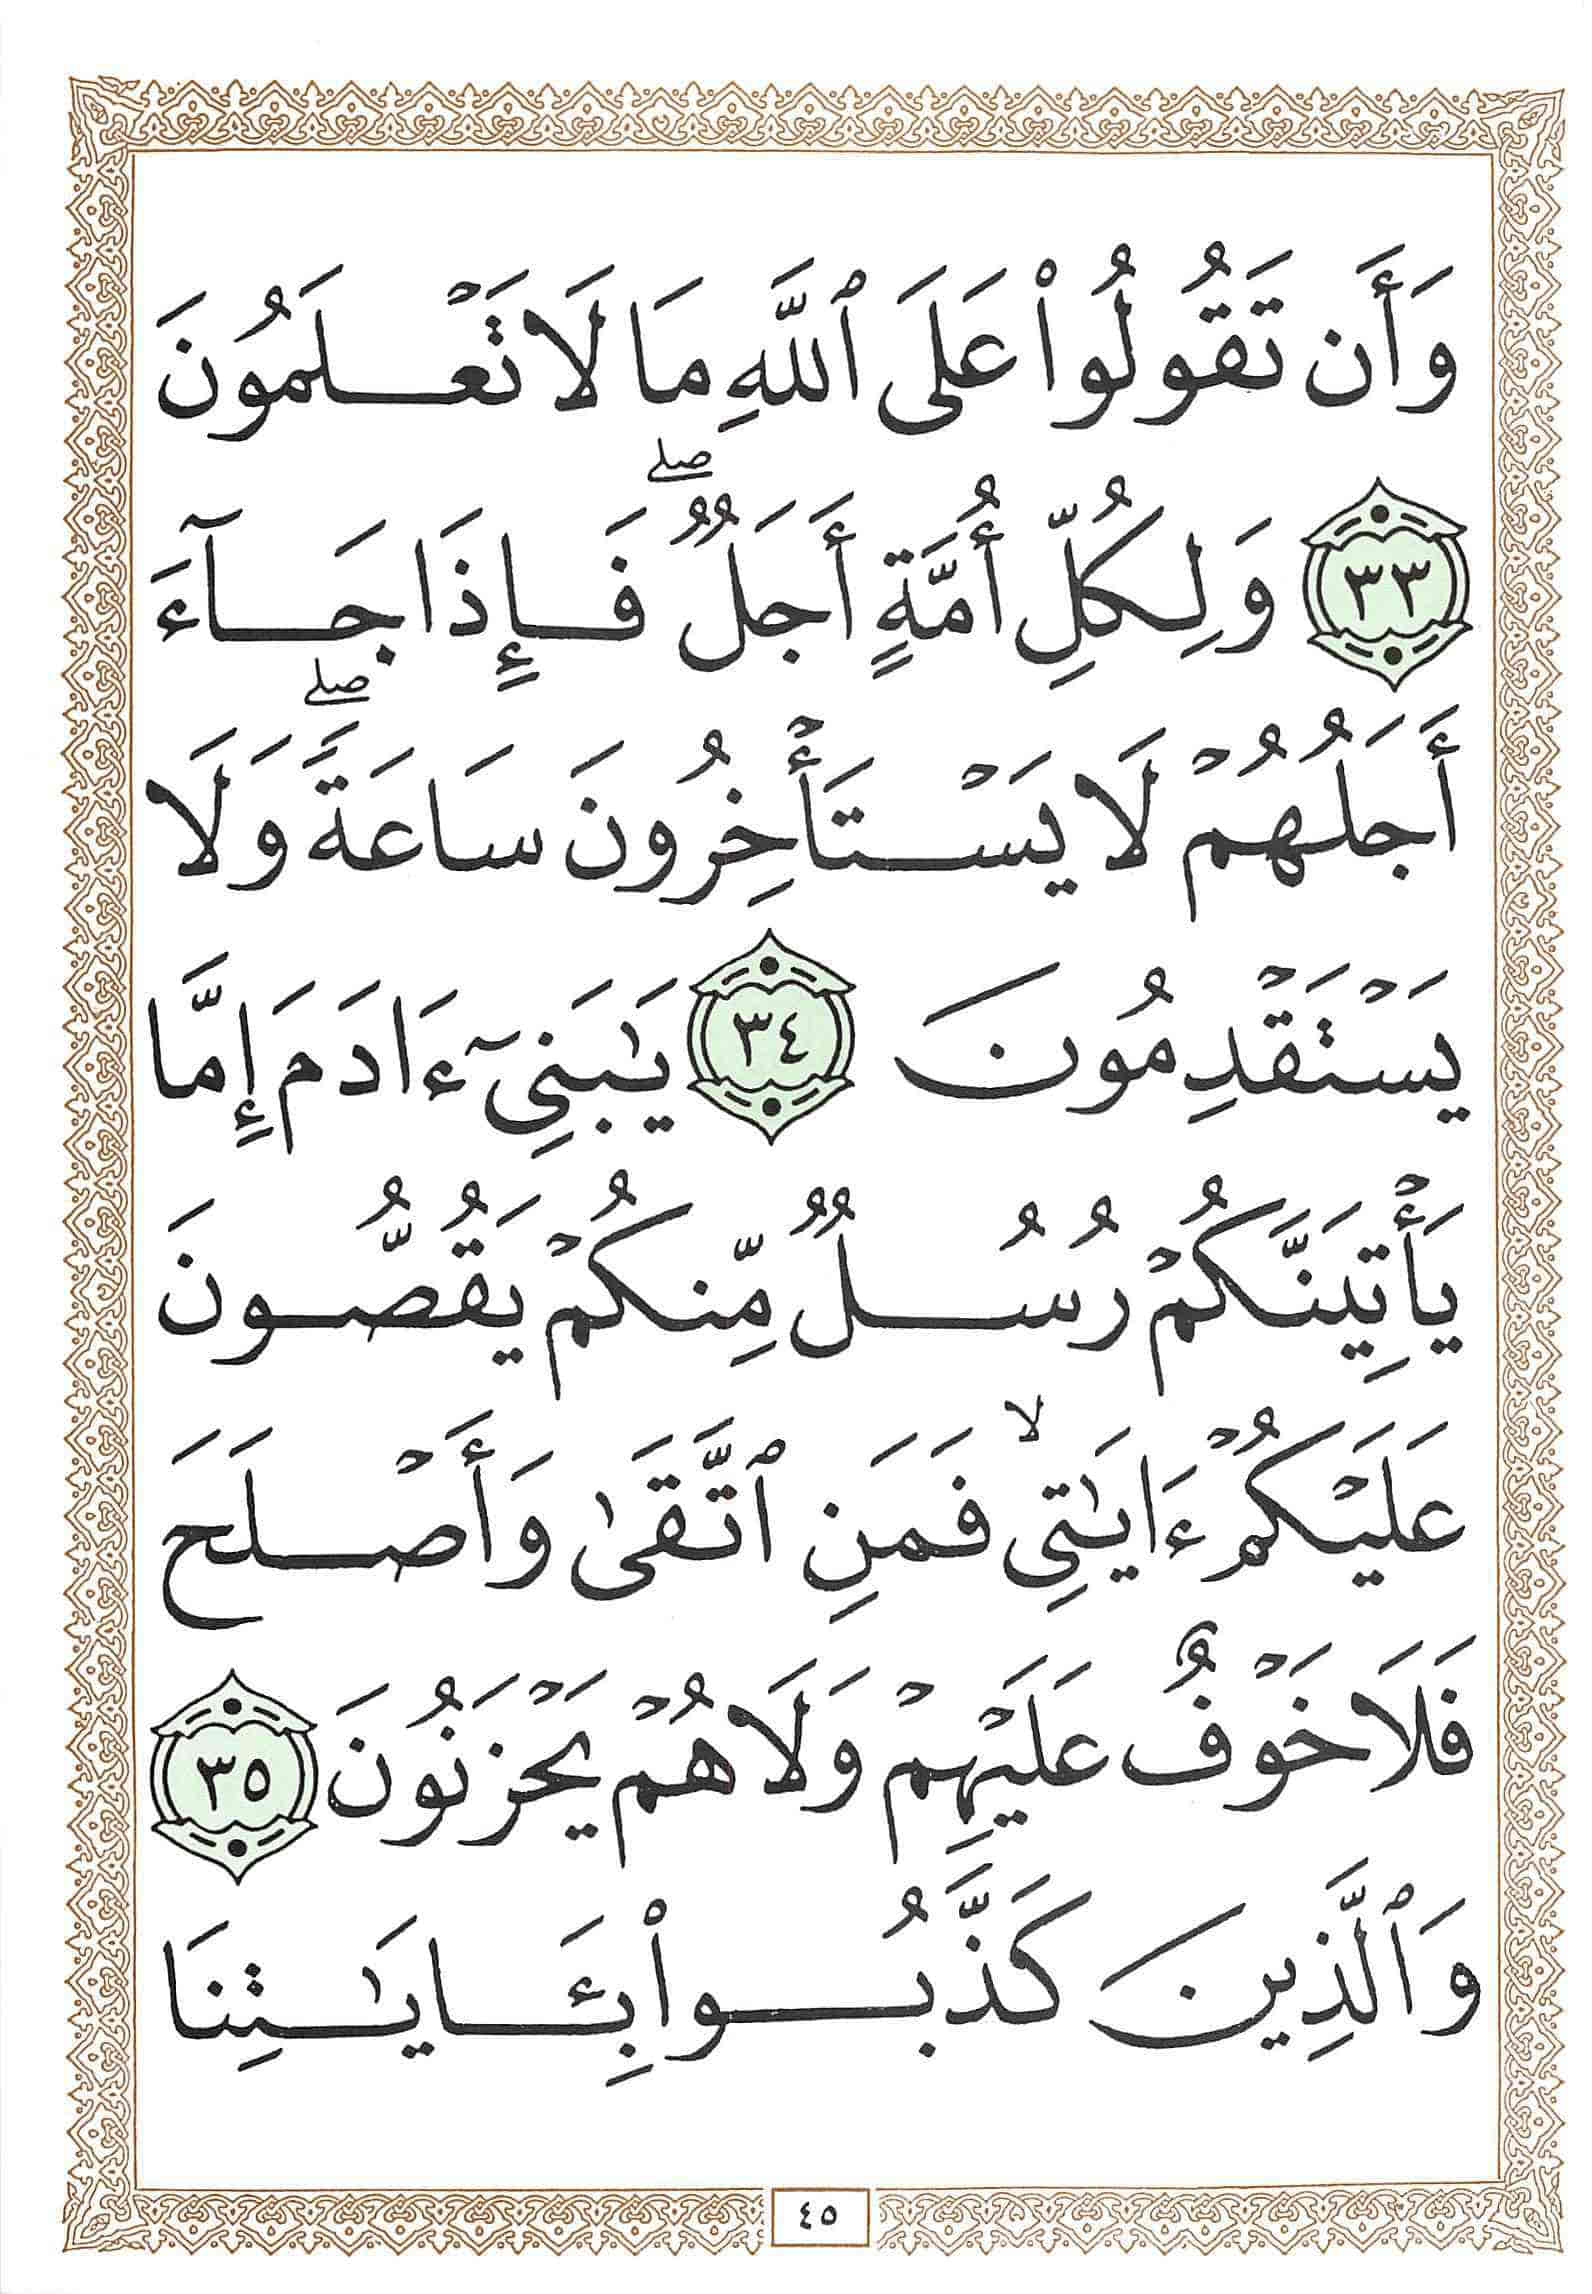 وَأَن تَقُولُوا۟ عَلَى ٱللَّهِ مَا لَا تَعْلَمُونَ
٣٣ وَلِكُلِّ أُمَّةٍ أَجَلٌ ۖ فَإِذَا جَآءَ
أَجَلُهُمْ لَا يَسْتَأْخِرُونَ سَاعَةً ۖ وَلَا
يَسْتَقْدِمُونَ ٣٤ يَـٰبَنِىٓ ءَادَمَ إِمَّا
يَأْتِيَنَّكُمْ رُسُلٌ مِّنكُمْ يَقُصُّونَ
عَلَيْكُمْ ءَايَـٰتِى ۙ فَمَنِ ٱتَّقَىٰ وَأَصْلَحَ
فَلَا خَوْفٌ عَلَيْهِمْ وَلَا هُمْ يَحْزَنُونَ ٣٥
وَٱلَّذِينَ كَذَّبُوا۟ بِـَٔايَـٰتِنَا
٤٥